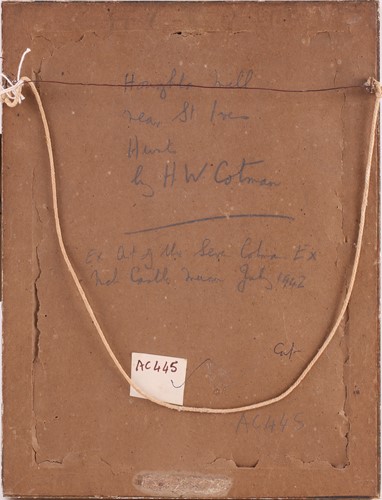 Houghton Mill
near St Ives
Hunts
by H W Cotman
Ex Art of the Cotman Ex
Castle July 1942
AC445
AC445